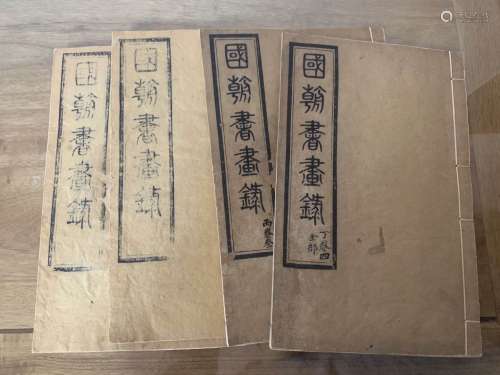 國朝書畫錄
國朝書畫錄
國朝書畫錄
丙卷
國朝書畫錄
丁卷四
全部